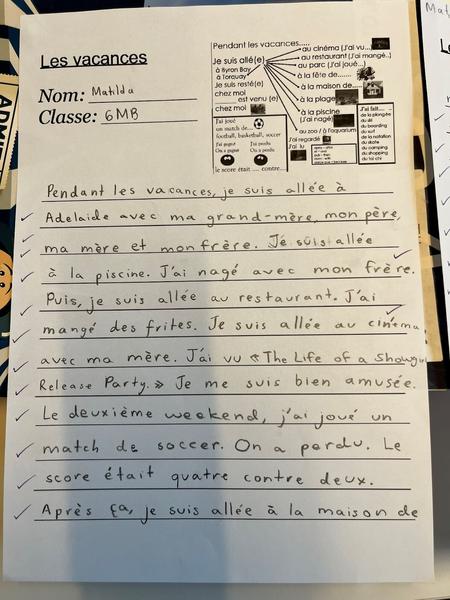 Les vacances
Nom: Matilda
Classe: 6MB
Pendant les vacances.....
Je suis allé(e)
à Byron Bay
à Torquay
Je suis resté(e)
chez moi
est venu (e)
chez moi
au cinéma (J'ai vu...
au restaurant (J'ai mangé..)
au parc (J'ai joué...)
à la fête de......
à la maison de.....
à la plage
à la piscine
(J'ai nagé)
au zoo / à l'aquarium
J'ai joué
un match de...
football, basketball, soccer
J'ai gagné J'ai perdu
On a gagné On a perdu
le score était .... contre...
J'ai regardé
J'ai lu
J'ai fait.....
de la plongée
du ski
du boarding
du surf
de la natation
du skate
du camping
du shopping
du tai chi
Pendant les vacances, je suis allée à
Adelaide avec ma grand-mère, mon père,
ma mère et mon frère. Je suis allée
à la piscine. J'ai nagé avec mon frère.
Puis, je suis allée au restaurant. J'ai
mangé des frites. Je suis allée au cinéma
avec ma mère. J'ai vu « The Life of a Showgirl
Release Party. » Je me suis bien amusée.
Le deuxième weekend, j'ai joué un
match de soccer. On a perdu. Le
score était quatre contre deux.
Après ça, je suis allée à la maison de